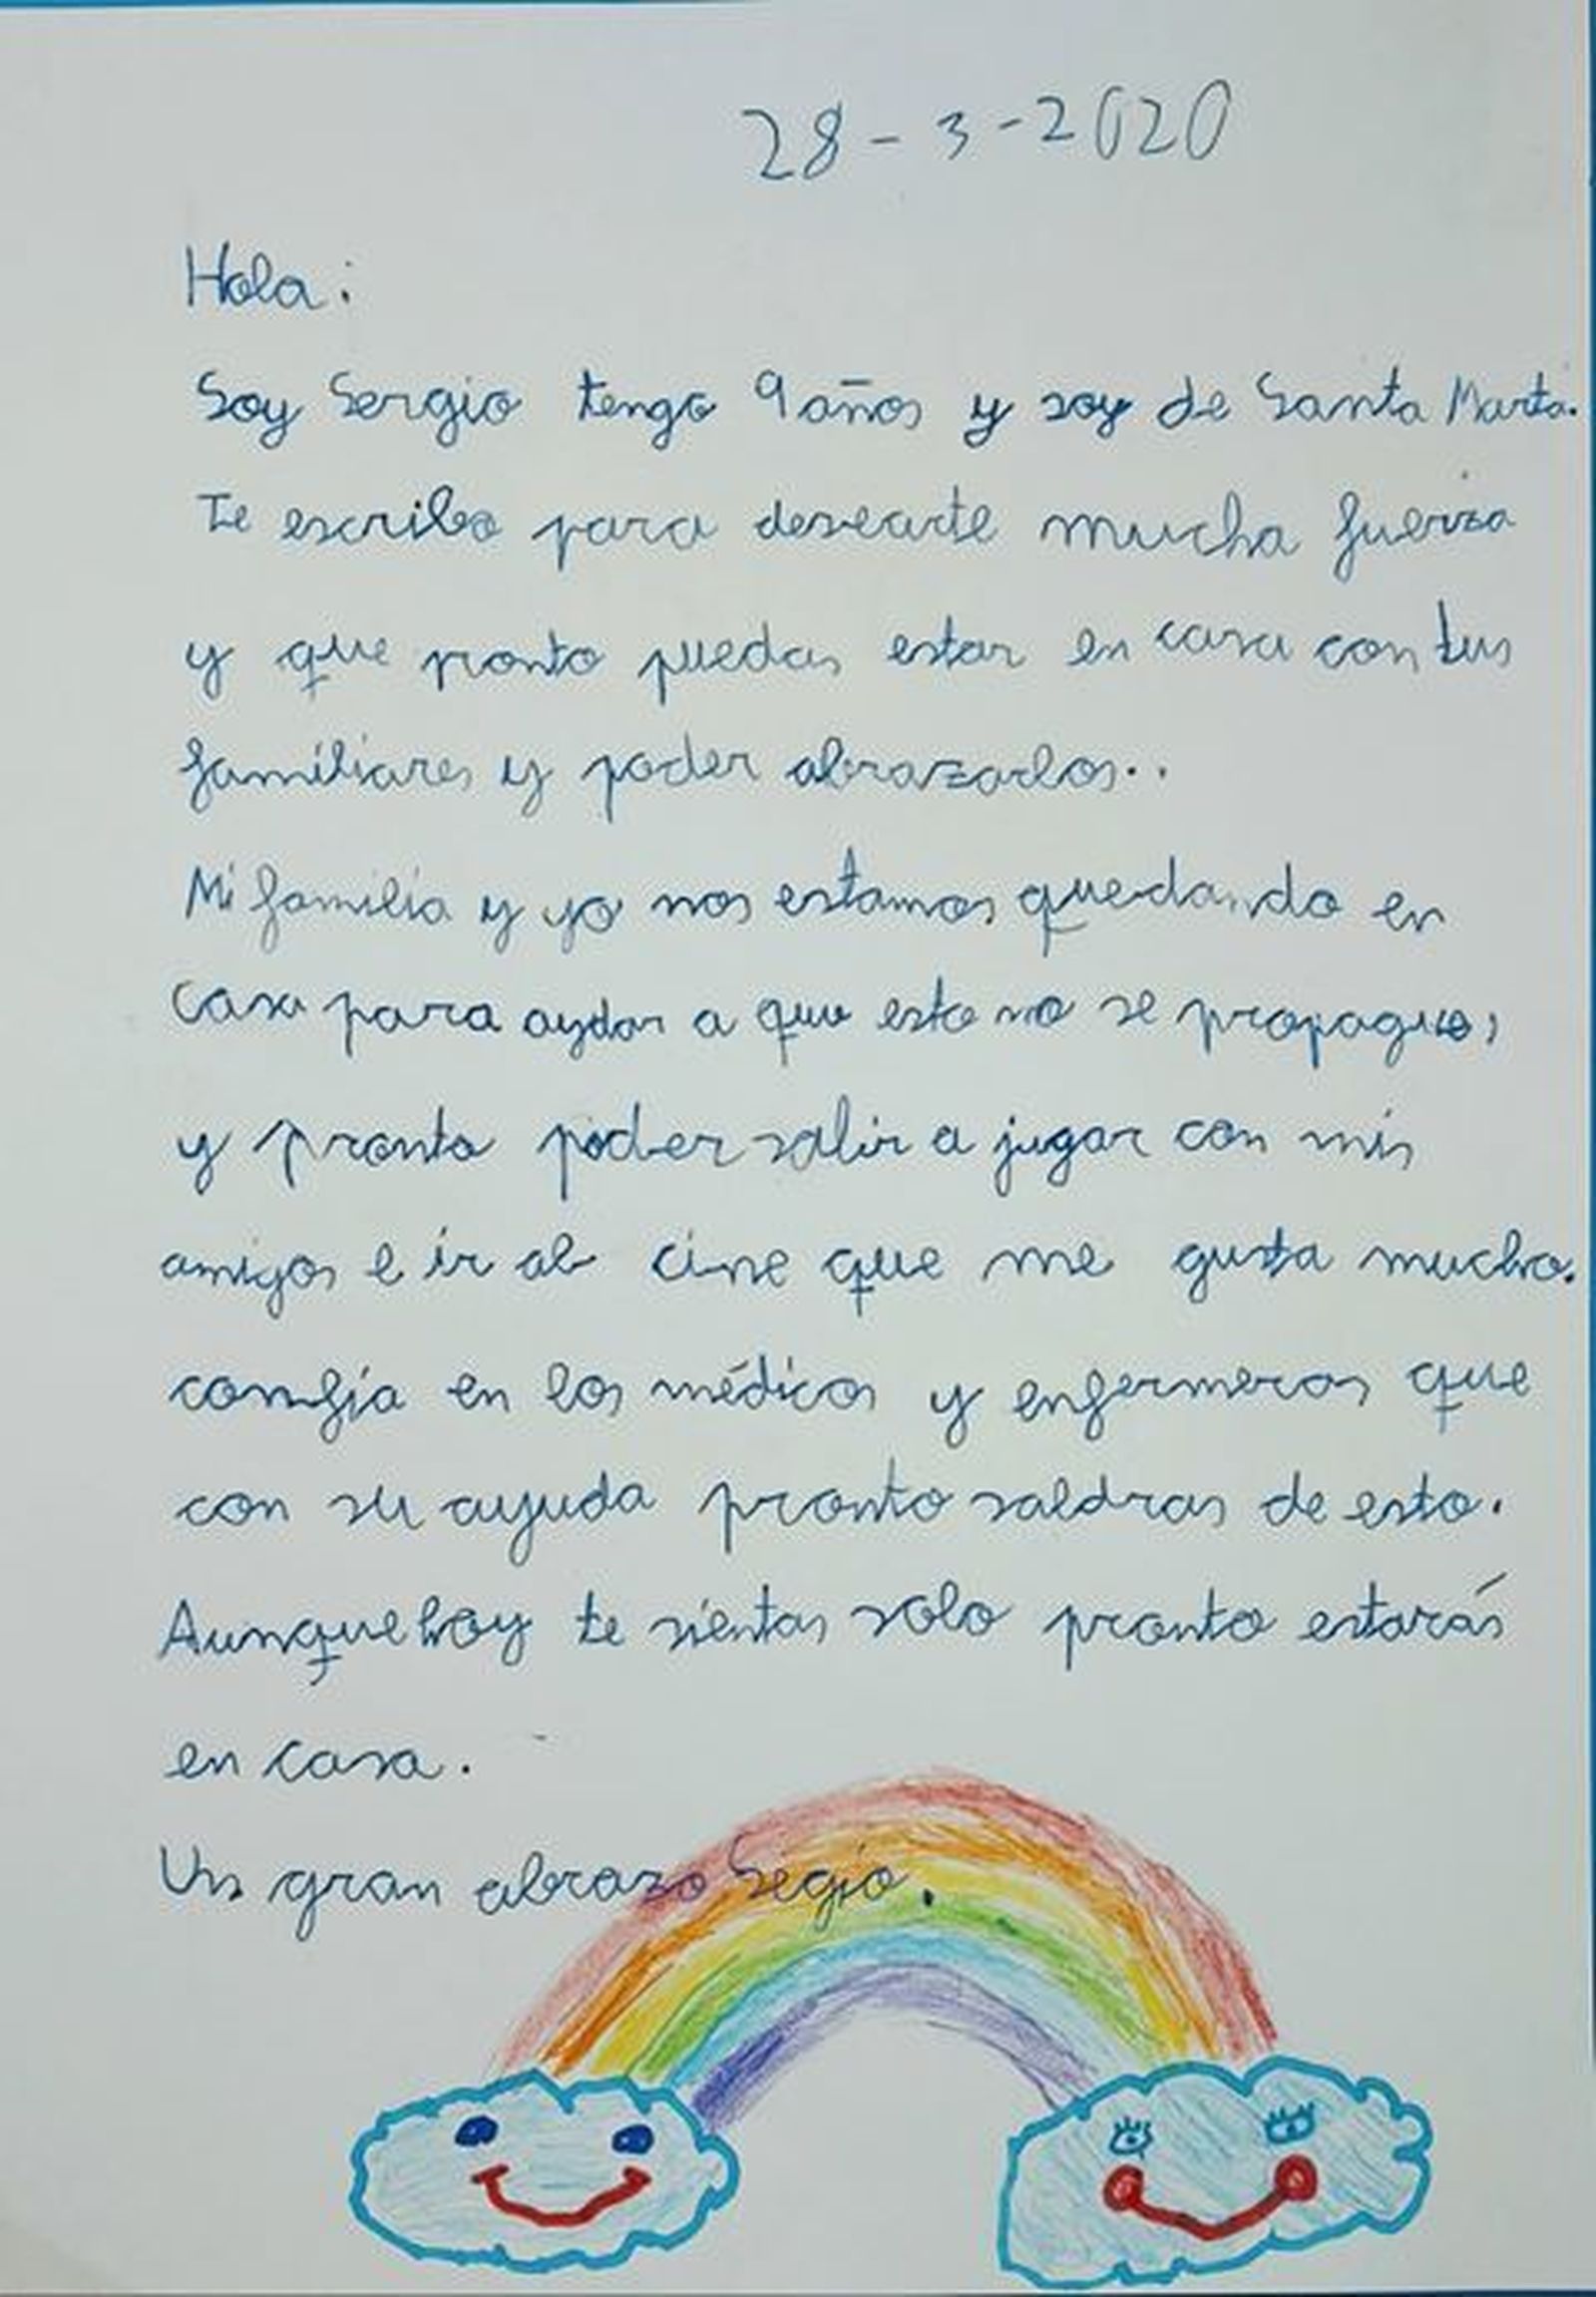 28-3-2020
Hola:
Soy Sergio tengo 9 años y soy de Santa Marta.
Te escribo para desearte mucha fuerza
y que ronto puedas estar en casa con tus
familiares y poder abrazarlos..
Mi familia y yo nos estamos quedando en
casa para aydar a que esto no se propague,
y pronto poder salir a jugar con mis
amigos e ir al cine que me gusta mucho.
confía en los médicos y enfermeros que
con su ayuda pronto saldras de esto.
Aunque hoy te sientas solo pronto estarás
en casa.
Un gran abrazo Segio.